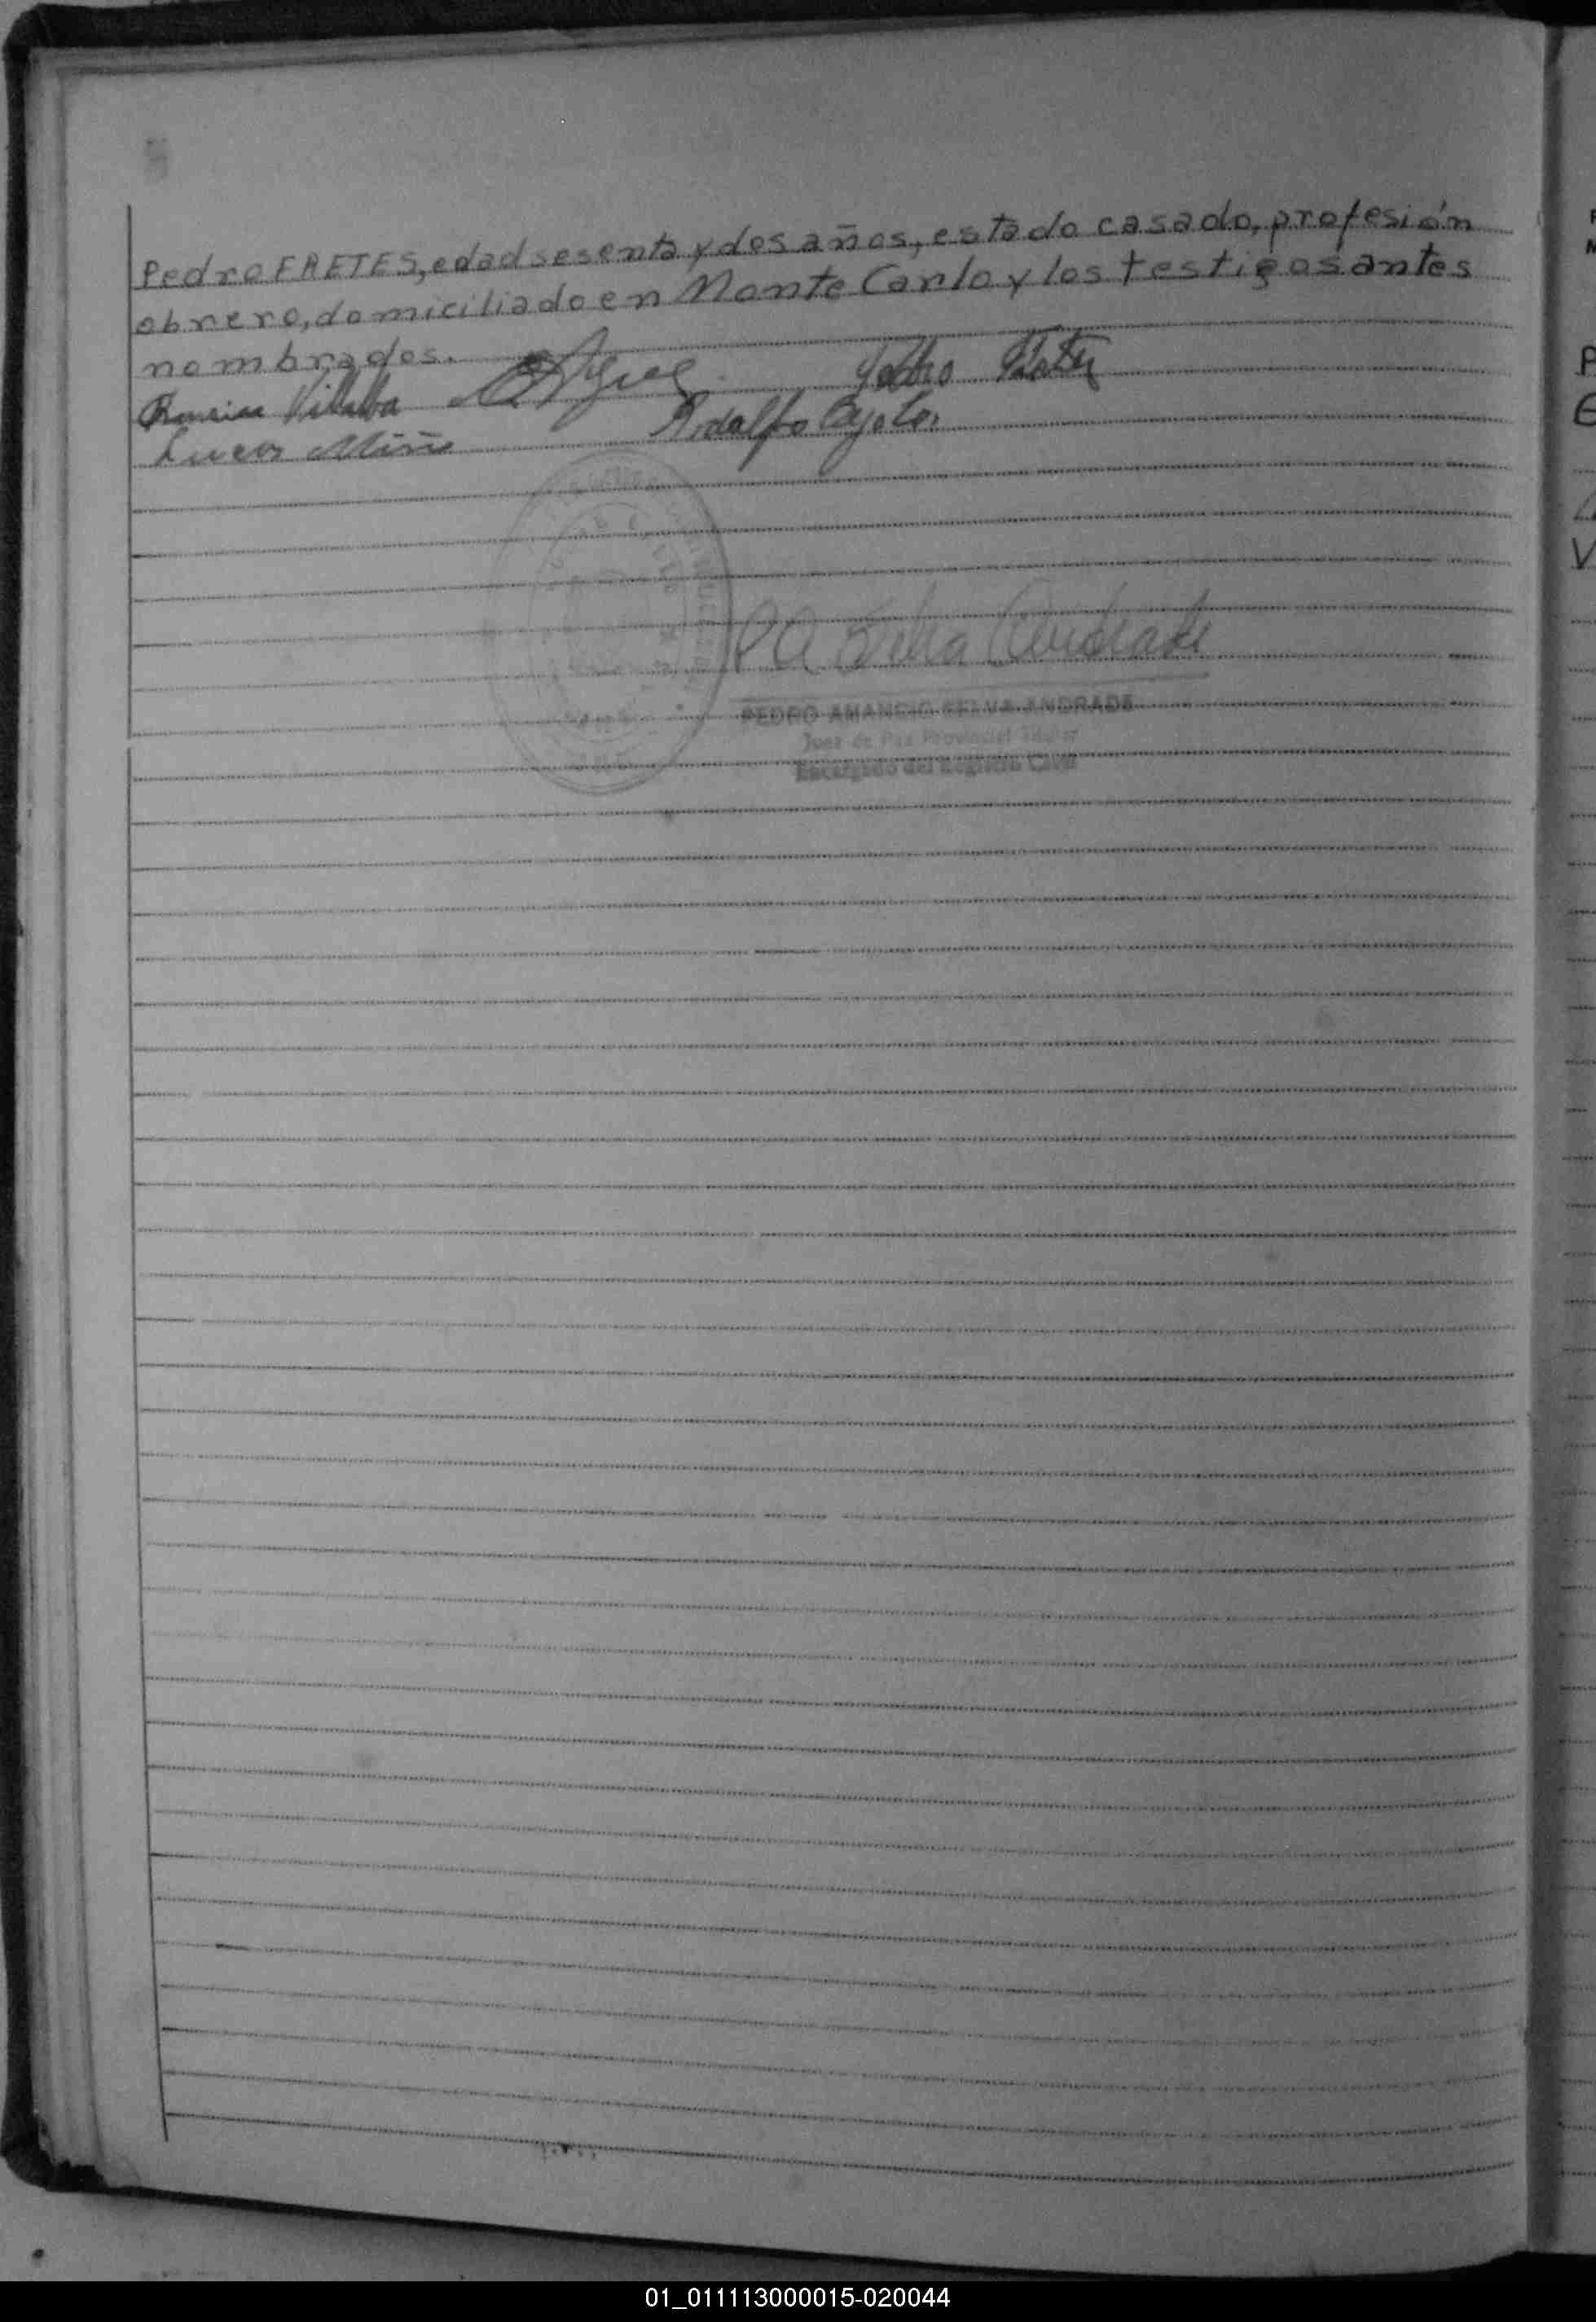 Pedro FRETES, edad sesenta y dos años, estado casado, profesión
obrero, domiciliado en Monte Carlo y los testigos antes
nombrados.
Villalba Pedro
Lucas Miño Rodolfo
PA Selva Andrade
PEDRO AMANCIO SELVA ANDRADE
Juez de Paz Provincial Titular
Encargado del Registro Civil
01_011113000015-020044